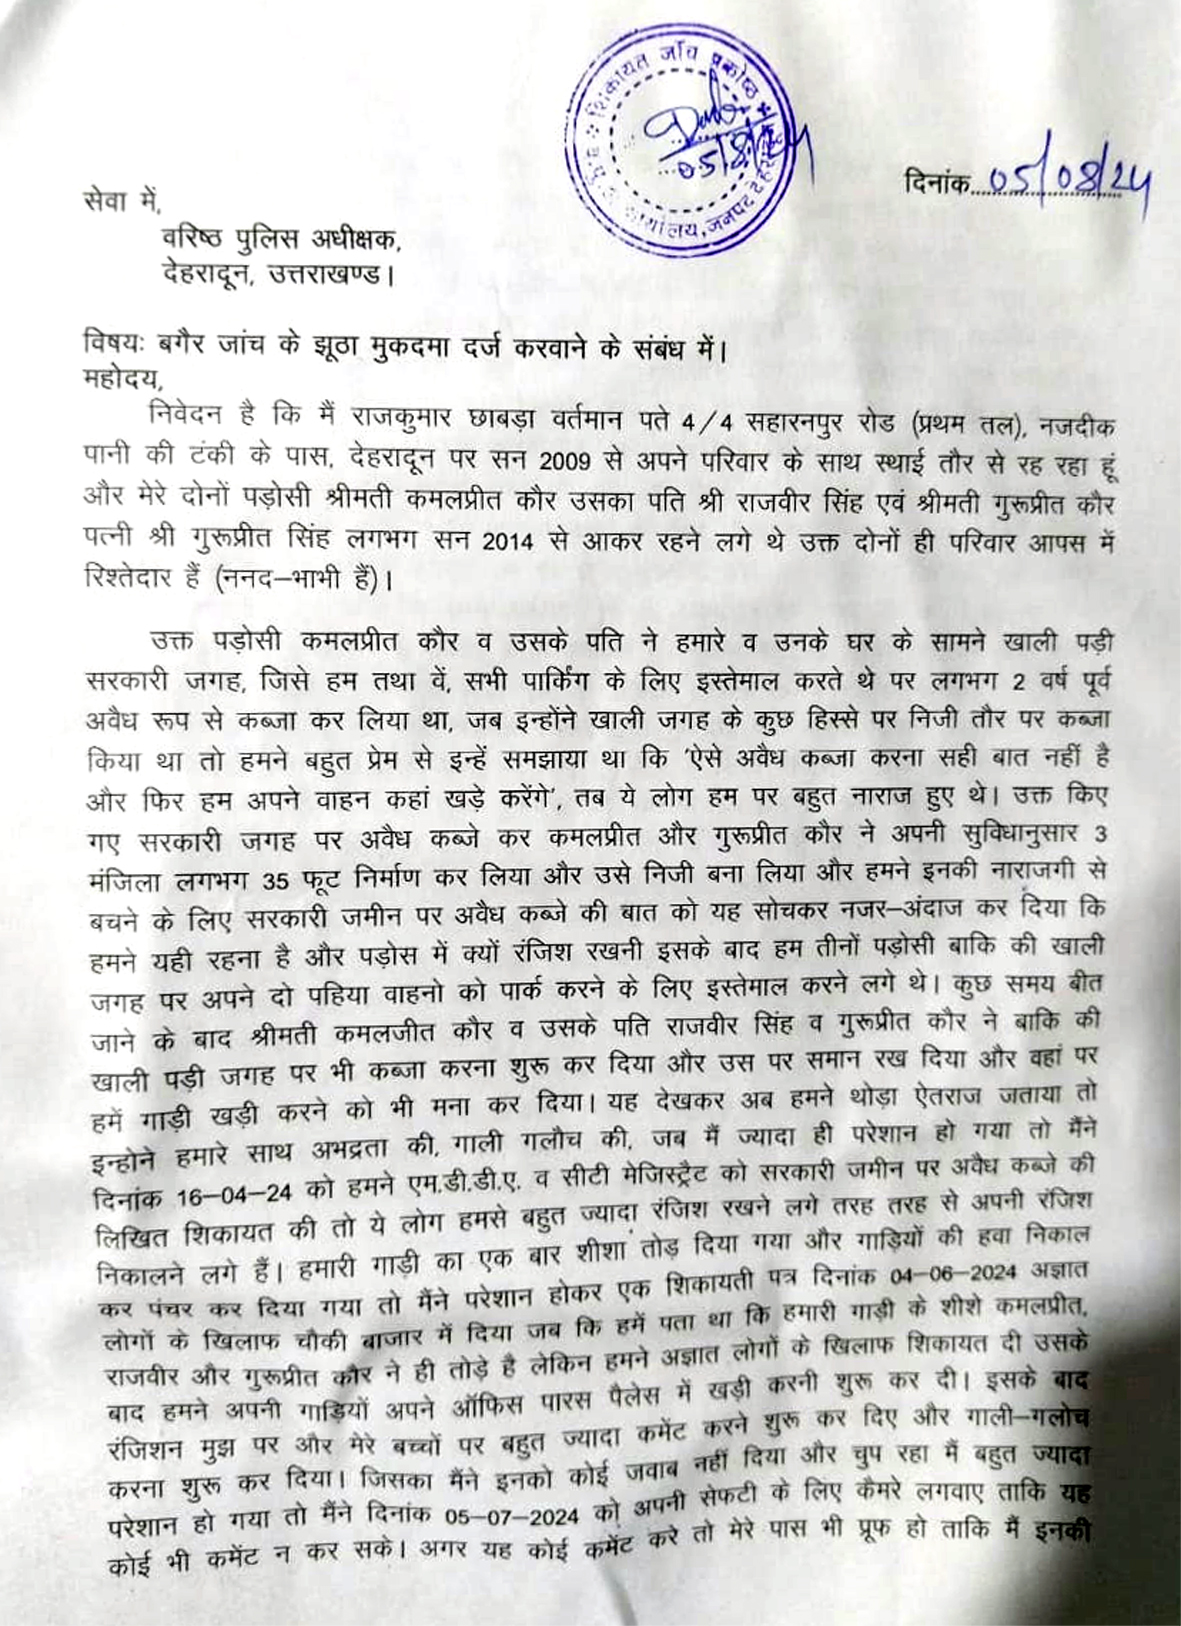 शिकायत जाँच प्रकोष्ठ
कार्यालय, जनपद देहरादून
05/8/24
दिनांक 05/08/24
सेवा में,
वरिष्ठ पुलिस अधीक्षक,
देहरादून, उत्तराखण्ड।
विषयः बगैर जांच के झूठा मुकदमा दर्ज करवाने के संबंध में।
महोदय,
निवेदन है कि मैं राजकुमार छाबड़ा वर्तमान पते 4/4 सहारनपुर रोड (प्रथम तल), नजदीक
पानी की टंकी के पास, देहरादून पर सन 2009 से अपने परिवार के साथ स्थाई तौर से रह रहा हूं
और मेरे दोनों पड़ोसी श्रीमती कमलप्रीत कौर उसका पति श्री राजवीर सिंह एवं श्रीमती गुरूप्रीत कौर
पत्नी श्री गुरूप्रीत सिंह लगभग सन 2014 से आकर रहने लगे थे उक्त दोनों ही परिवार आपस में
रिश्तेदार हैं (ननद–भाभी हैं)।
उक्त पड़ोसी कमलप्रीत कौर व उसके पति ने हमारे व उनके घर के सामने खाली पड़ी
सरकारी जगह, जिसे हम तथा वें, सभी पार्किंग के लिए इस्तेमाल करते थे पर लगभग 2 वर्ष पूर्व
अवैध रूप से कब्जा कर लिया था, जब इन्होंने खाली जगह के कुछ हिस्से पर निजी तौर पर कब्जा
किया था तो हमने बहुत प्रेम से इन्हें समझाया था कि 'ऐसे अवैध कब्जा करना सही बात नहीं है
और फिर हम अपने वाहन कहां खड़े करेंगे', तब ये लोग हम पर बहुत नाराज हुए थे। उक्त किए
गए सरकारी जगह पर अवैध कब्जे कर कमलप्रीत और गुरूप्रीत कौर ने अपनी सुविधानुसार 3
मंजिला लगभग 35 फूट निर्माण कर लिया और उसे निजी बना लिया और हमने इनकी नाराजगी से
बचने के लिए सरकारी जमीन पर अवैध कब्जे की बात को यह सोचकर नजर–अंदाज कर दिया कि
हमने यही रहना है और पड़ोस में क्यों रंजिश रखनी इसके बाद हम तीनों पड़ोसी बाकि की खाली
जगह पर अपने दो पहिया वाहनो को पार्क करने के लिए इस्तेमाल करने लगे थे। कुछ समय बीत
जाने के बाद श्रीमती कमलजीत कौर व उसके पति राजवीर सिंह व गुरूप्रीत कौर ने बाकि की
खाली पड़ी जगह पर भी कब्जा करना शुरू कर दिया और उस पर समान रख दिया और वहां पर
हमें गाड़ी खड़ी करने को भी मना कर दिया। यह देखकर अब हमने थोड़ा ऐतराज जताया तो
इन्होने हमारे साथ अभद्रता की, गाली गलौच की, जब मैं ज्यादा ही परेशान हो गया तो मैंने
दिनांक 16–04–24 को हमने एम.डी.डी.ए. व सीटी मेजिस्ट्रैट को सरकारी जमीन पर अवैध कब्जे की
लिखित शिकायत की तो ये लोग हमसे बहुत ज्यादा रंजिश रखने लगे तरह तरह से अपनी रंजिश
निकालने लगे हैं। हमारी गाड़ी का एक बार शीशा तोड़ दिया गया और गाड़ियों की हवा निकाल
कर पंचर कर दिया गया तो मैंने परेशान होकर एक शिकायती पत्र दिनांक 04–06–2024 अज्ञात
लोगों के खिलाफ चौकी बाजार में दिया जब कि हमें पता था कि हमारी गाड़ी के शीशे कमलप्रीत,
राजवीर और गुरूप्रीत कौर ने ही तोड़े है लेकिन हमने अज्ञात लोगों के खिलाफ शिकायत दी उसके
बाद हमने अपनी गाड़ियों अपने ऑफिस पारस पैलेस में खड़ी करनी शुरू कर दी। इसके बाद
रंजिशन मुझ पर और मेरे बच्चों पर बहुत ज्यादा कमेंट करने शुरू कर दिए और गाली–गलोच
करना शुरू कर दिया। जिसका मैंने इनको कोई जवाब नहीं दिया और चुप रहा मैं बहुत ज्यादा
परेशान हो गया तो मैंने दिनांक 05–07–2024 को अपनी सेफटी के लिए कैमरे लगवाए ताकि यह
कोई भी कमेंट न कर सके। अगर यह कोई कमेंट करे तो मेरे पास भी प्रूफ हो ताकि मैं इनकी